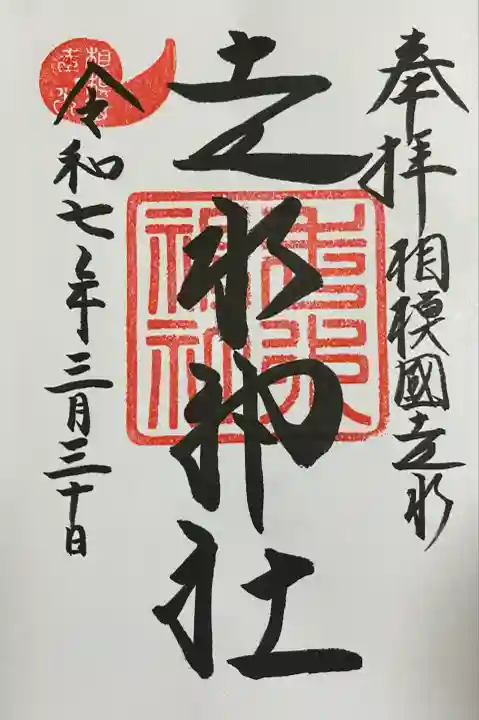 奉拝 相模國走水
走水神社
走水
神社
令和七年三月三十日